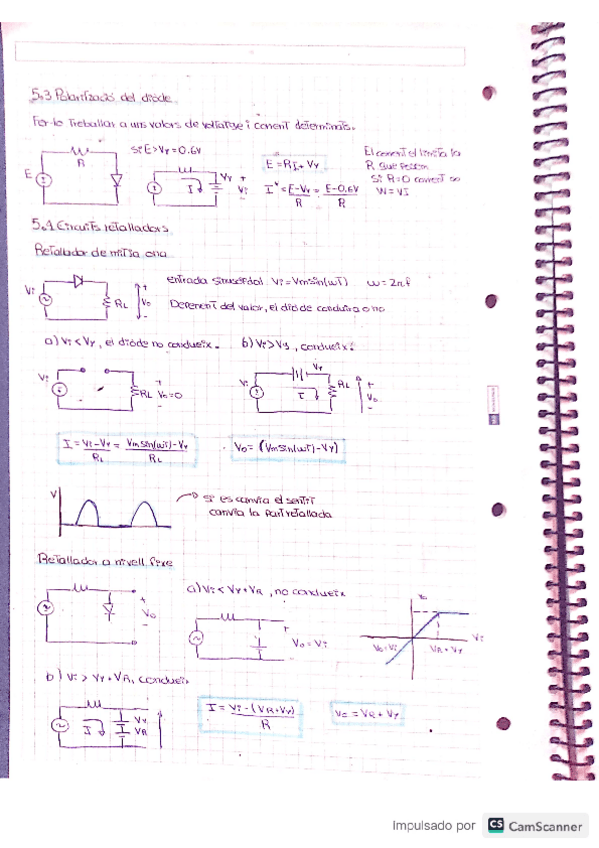 5.3 Polarització del díode.
Fer-lo treballar a uns valors de voltatge i corrent determinats.
Si E>Vγ=0.6V
R
E
I
Vγ
+
Vi
-
E = RI + Vγ
I = E-Vγ / R = E-0.6V / R
El corrent el limita la
R que fessin
Si R=0 corrent ∞
W=VI
5.4 Circuits retalladors
Retallador de mitja ona
Vi
RL
+
Vo
-
entrada sinusoïdal Vi=Vmsin(wT) w=2πf
Depenent del valor, el díode conduirà o no
a) Vi<Vγ, el díode no condueix. b) Vi>Vγ, condueix:
Vi
+
RL Vo=0
-
Vi
Vγ
I
RL
+
Vo
-
I = Vi-Vγ / RL = Vmsin(wT)-Vγ / RL
Vo= (Vmsin(wT)-Vγ)
V
Si es canvia el sentit
canvia la part retallada
Retallador a nivell fixe
+
Vo
-
a) Vi < Vγ+VR, no condueix
+
Vo = Vi
-
Vo
Vi
Vo=Vi
VR+Vγ
b) Vi > Vγ+VR, condueix
I
Vγ
VR
I = Vi-(VR+Vγ) / R
Vo = VR + Vγ
Impulsado por CS CamScanner